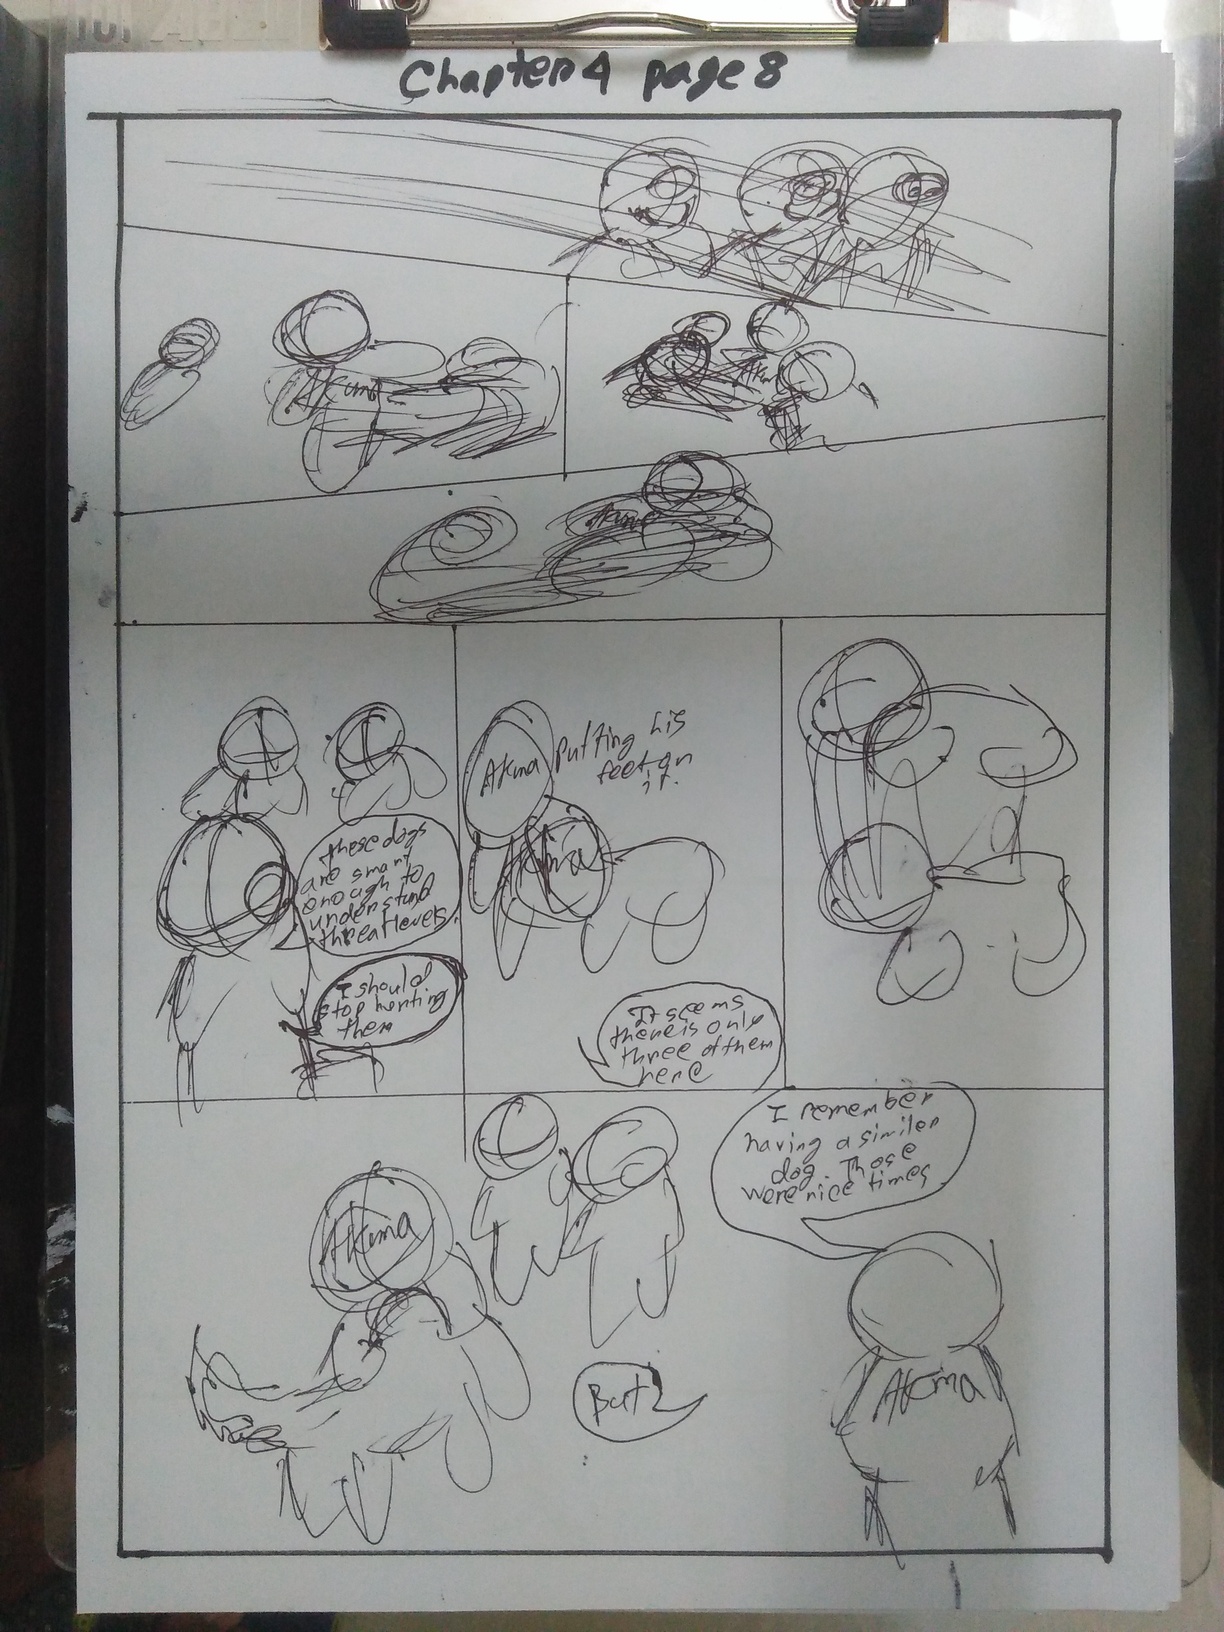 Chapter 4 page 8
Akuma
Akma
these dogs
are smart
enough to
understand
threat levels.
I should
stop herting
them
Akma
Putting his
feet on
it.
Akma
It seems
there is only
three of them
here
I remember
having a similer
dog. Those
were nice times
Akma
But
Akma